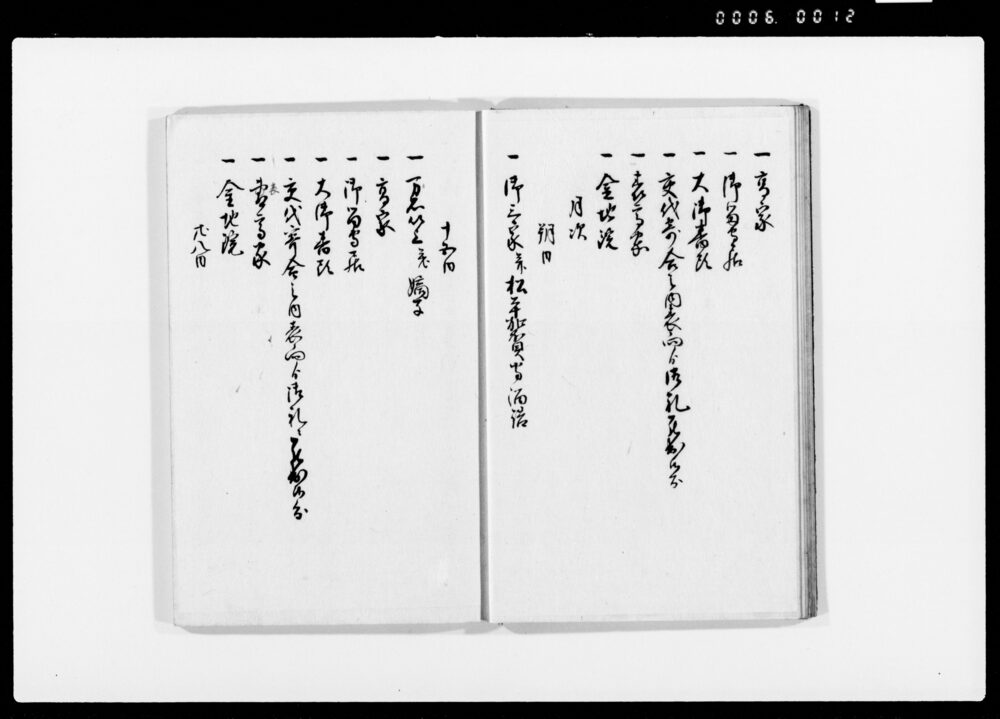 0006. 0012
一 高家
一 御留守居
一 大御番頭
一 交代寄合之内表向より御礼申上候分
一 表高家
一 金地院
月次
朔日
一 御三家并松平加賀守溜詰
十五日
一 万石以上并嫡子
一 高家
一 御留守居
一 大御番頭
一 交代寄合之内表向より御礼申上候分
一 表高家
一 金地院
廿八日